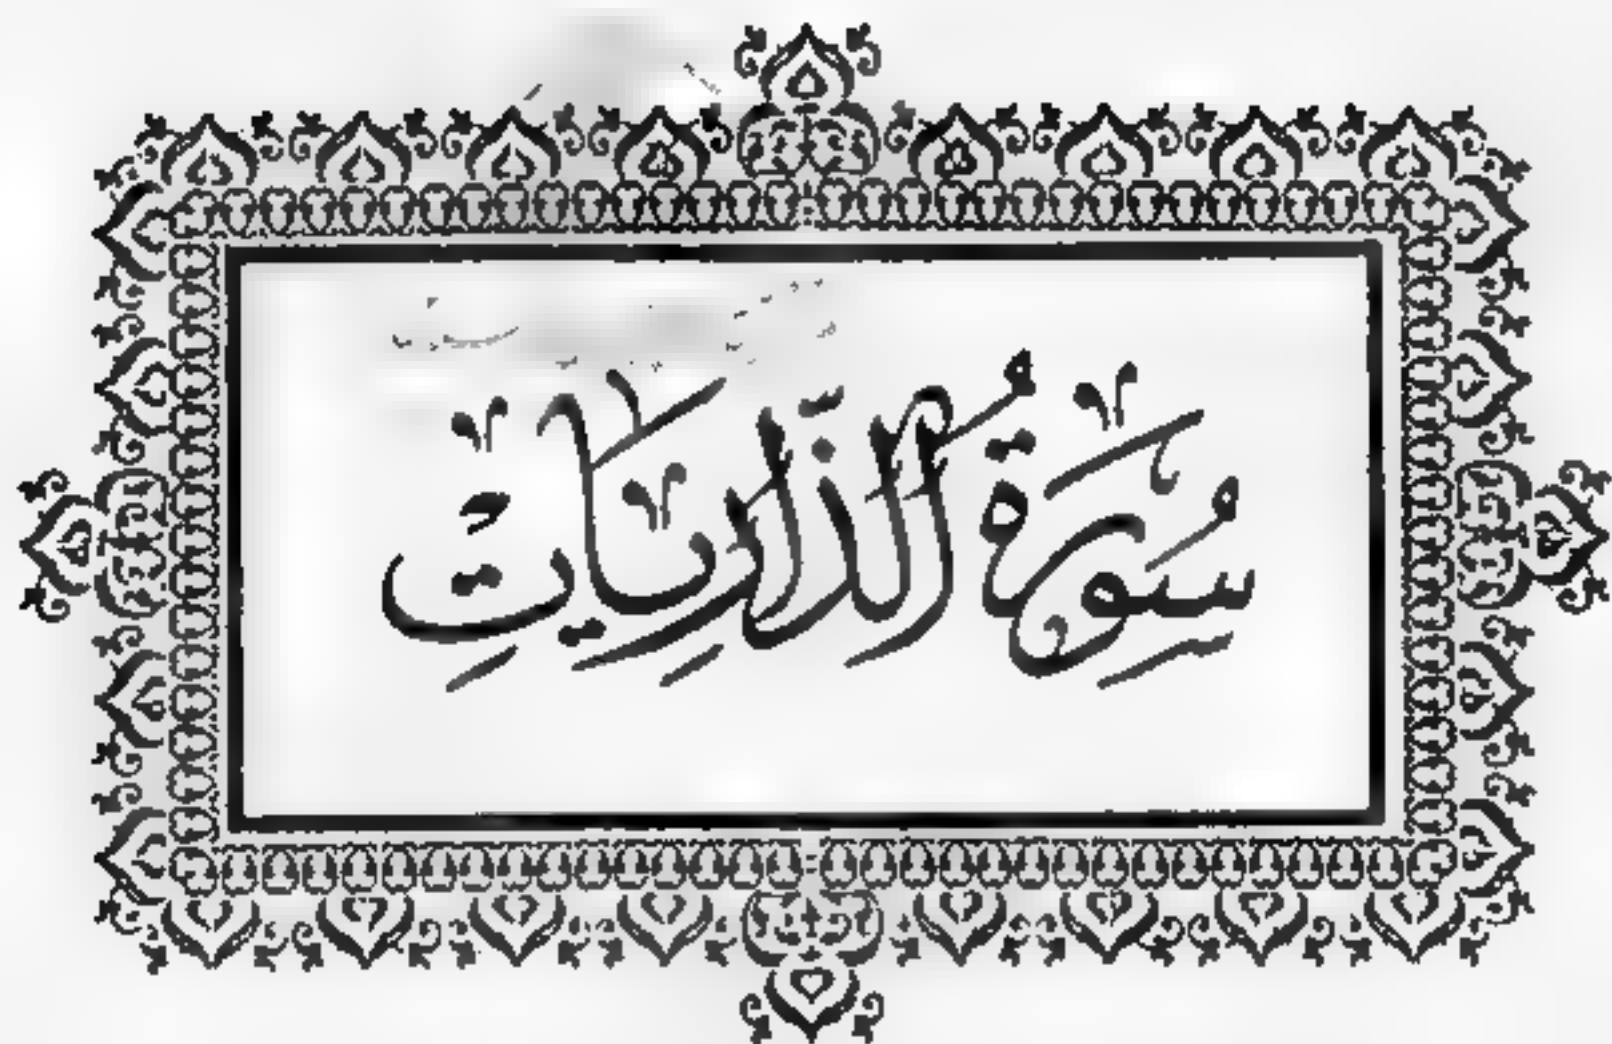 سُورَةُ الذَّارِيَاتِ